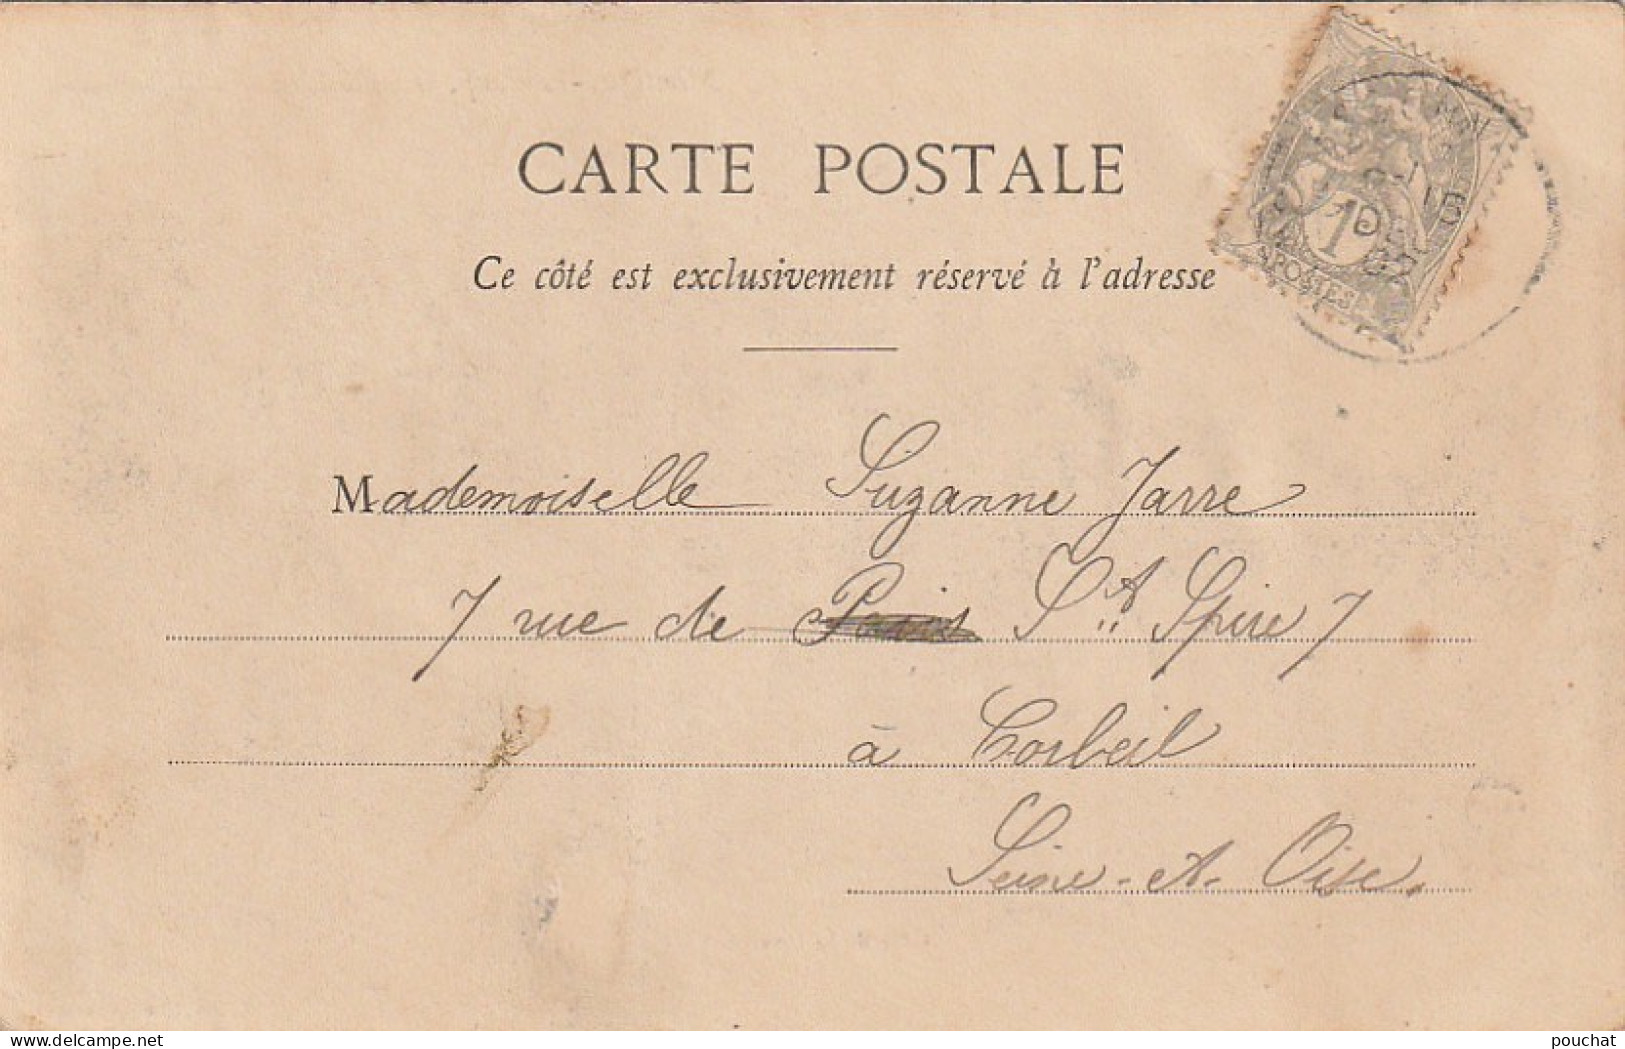 CARTE POSTALE
Ce côté est exclusivement réservé à l'adresse
1
POSTES
Mademoiselle Suzanne Jarre
7 rue de Paris St Spire 7
à Corbeil
Seine-et-Oise.
delcampe.net
pouchat